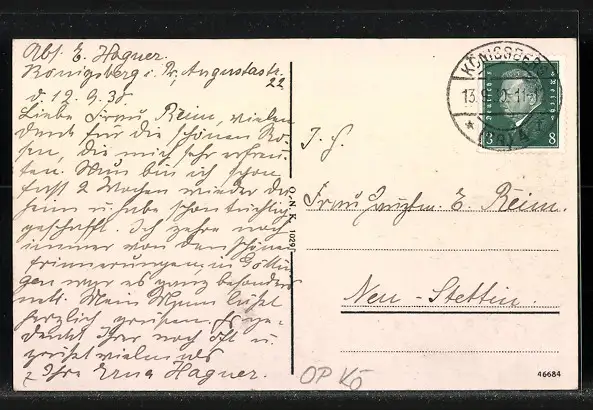 Abs. E. Hagner.
Königsberg i. Pr., Augustastr.
22
d. 12. 9. 30
Liebe Frau Reim, vielen
Dank für die schönen Ro-
sen, die mich sehr erfreu-
ten. Nun bin ich schon
fast 2 Wochen wieder da-
heim u. habe schon tüchtig
geschafft. Ich zehre noch
immer von den schönen
Erinnerungen, in
gen war es ganz besonders
nett. Mein Mann läßt
herzlich grüßen. Er ge-
denkt Ihrer noch oft u.
grüßt vielmals
Ihre Erna Hagner.
O.N.K. 1029
KÖNIGSBERG
13.9.
(PR) 4
8
I. H.
Frau E. Reim.
Neu-Stettin.
OP Kö
46684